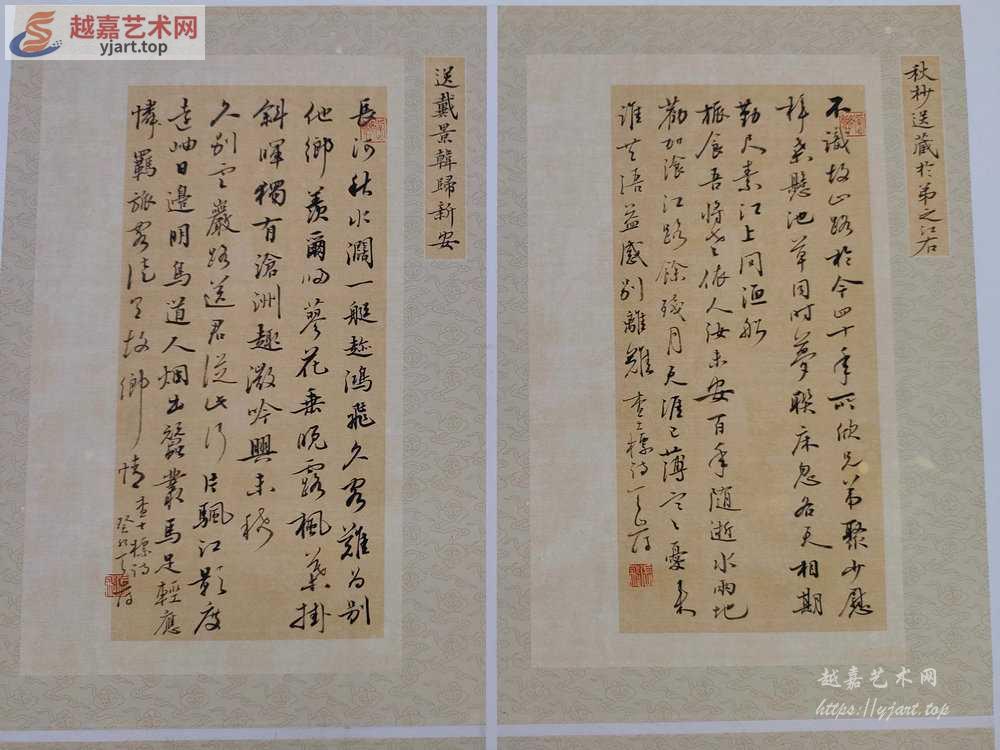 越嘉艺术网
yjart.top
秋杪送藏於弟之江右
不識故山路於今四十年所欣兄弟聚少慰
梓桑懸池草同時夢聯床忽各天相期
勤尺素江上問迴船
食吾將老依人汝未安百年隨逝水兩地
勸加湌江路餘殘月天涯已薄寒憂來
誰共語益感別離難 查士標詩
送戴景韓歸新安
長河秋水濶一艇趂鴻飛久客難為别
他鄉羨爾歸蓼花垂晚露楓葉掛
斜暉獨有滄洲趣微吟興未稀
久别雲巖路送君從此行片颿江影度
遠岫日邊明鳥道人烟出蠶叢馬足輕應
憐羈旅客故鄉情 查士標詩
越嘉艺术网
https://yjart.top